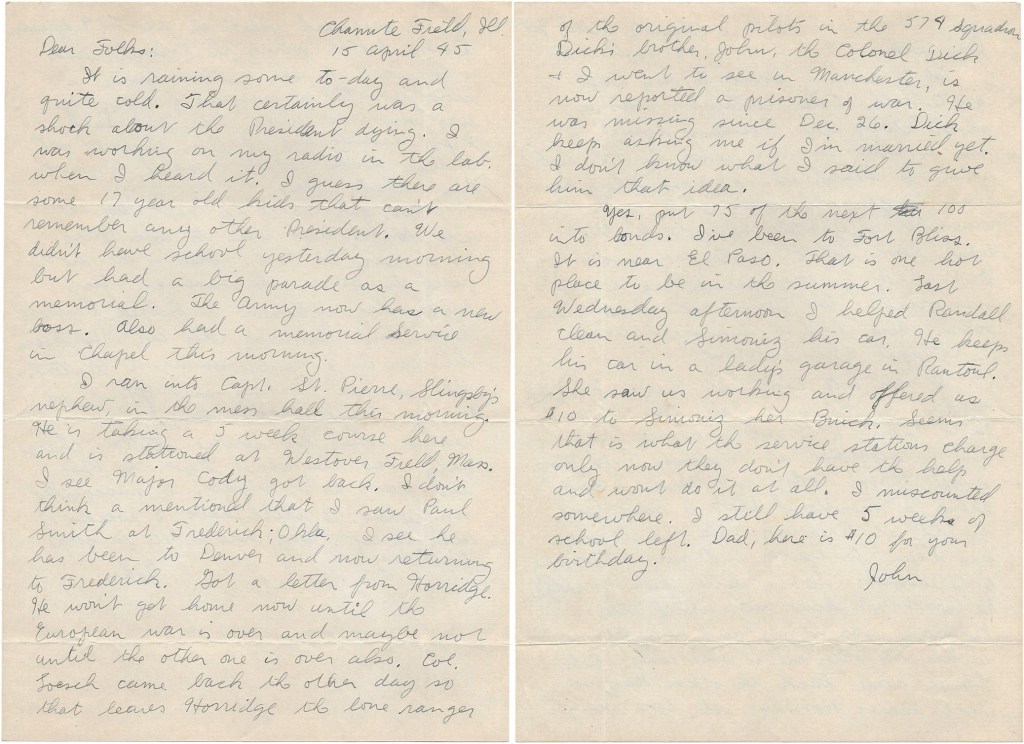 Chanute Field, Ill.
15 April 45
Dear Folks:
It is raining some to-day and
quite cold. That certainly was a
shock about the President dying. I
was working on my radio in the lab.
when I heard it. I guess there are
some 17 year old kids that can't
remember any other President. We
didn't have school yesterday morning
but had a big parade as a
memorial. The Army now has a new
boss. Also had a memorial service
in Chapel this morning.
I ran into Capt. St. Pierre, Slingsby's
nephew, in the mess hall this morning.
He is taking a 5 week course here
and is stationed at Westover Field, Mass.
I see Major Cody got back. I don't
think a mentioned that I saw Paul
Smith at Frederick, Okla. I see he
has been to Denver and now returning
to Frederick. Got a letter from Horridge.
He won't get home now until the
European war is over and maybe not
until the other one is over also. Col.
Loesch came back the other day so
that leaves Horridge the lone ranger
of the original pilots in the 574 squadron
Dick's brother, John, the Colonel Dick
+ I went to see in Manchester, is
now reported a prisoner of war. He
was missing since Dec. 26. Dick
keeps asking me if I'm married yet.
I don't know what I said to give
him that idea.
Yes, put 75 of the next 100
into bonds. I've been to Fort Bliss.
It is near El Paso. That is one hot
place to be in the summer. Last
Wednesday afternoon I helped Randall
clean and Simoniz his car. He keeps
his car in a lady's garage in Rantoul.
She saw us working and offered us
$10 to Simoniz her Buick. Seems
that is what the service stations charge
only now they don't have the help
and won't do it at all. I miscounted
somewhere. I still have 5 weeks of
school left. Dad, here is $10 for your
birthday.
John